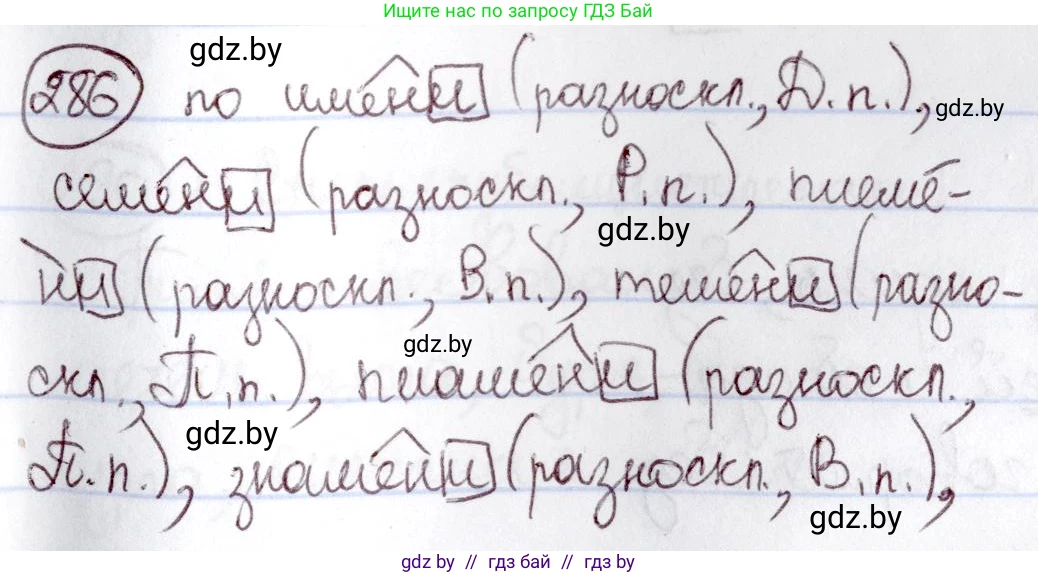 Ищите нас по запросу ГДЗ Бай
gdz.by
286 по имени (разноскл., Д. п.), gdz.by
семени (разноскл., Р. п.), племе-
gdz.by
ни (разноскл., В. п.), темени (разно-
gdz.by
скл., П. п.), пламени (разноскл.,
gdz.by
П. п.), знамени (разноскл., В. п.),
gdz.by
gdz by // гдз бай // гдз by